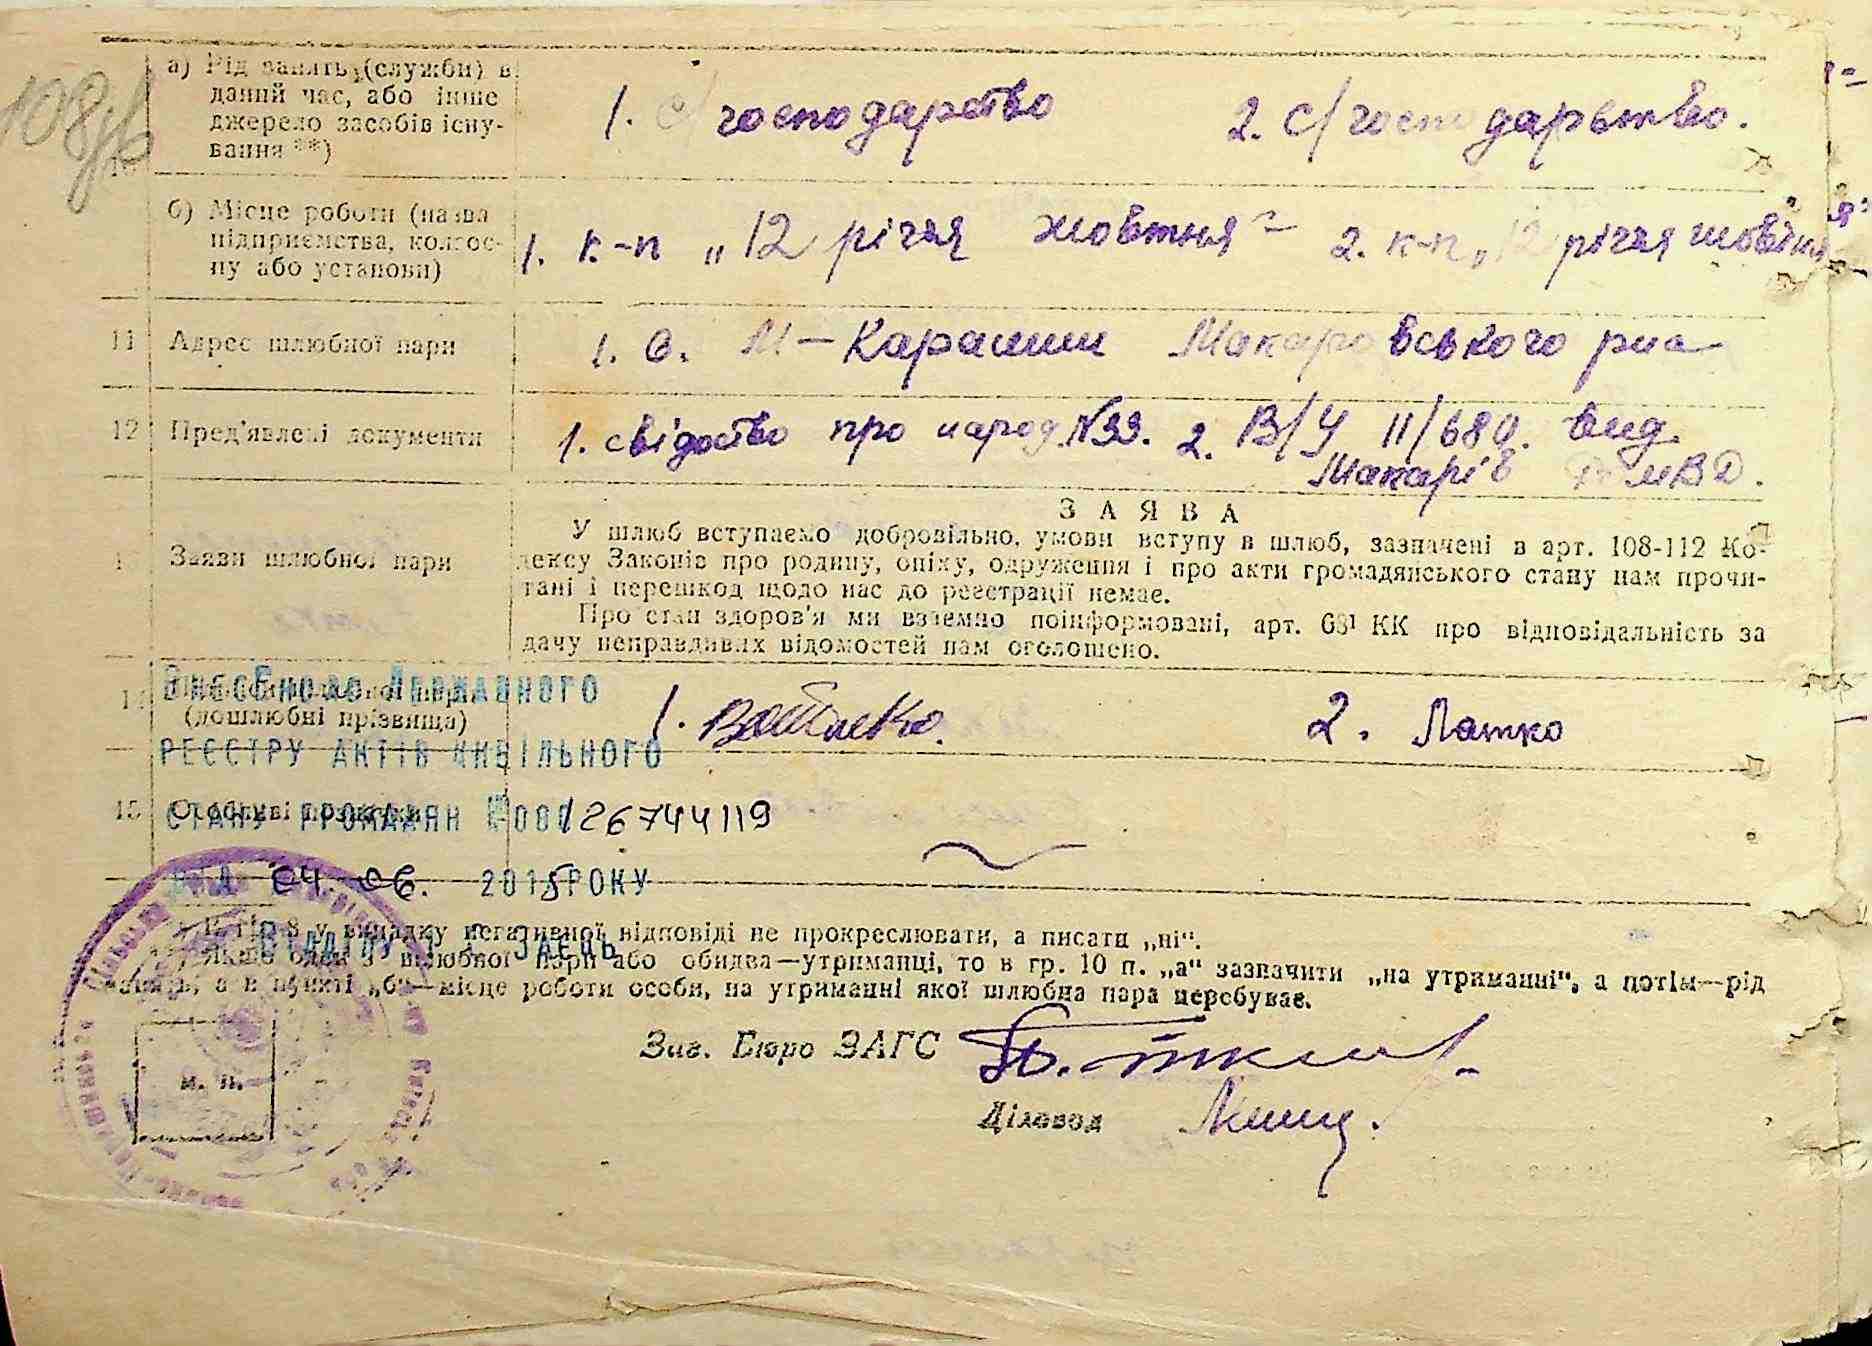 108 зв
а) Рід занять (служби) в
даний час, або інше
джерело засобів існу-
вання **)
1. с/господарство 2. с/господарьтво.
10
б) Місце роботи (назва
підприємства, колгос-
пу або установи)
1. к-п „12 річчя жовтня" 2. к-п „12 річчя жовтня
11 Адрес шлюбної пари
1. с. М-Карашин Макаровського р-на
12 Пред'явлені документи
1. свідоство про народ. №33. 2. В/У II/680. вид.
Макарів РО МВД.
ЗАЯВА
Заяви шлюбної пари
У шлюб вступаємо добровільно, умови вступу в шлюб, зазначені в арт. 108-112 Ко-
дексу Законів про родину, опіку, одруження і про акти громадянського стану нам прочи-
тані і перешкод щодо нас до реєстрації немає.
Про стан здоров'я ми взаємно поінформовані, арт. 68¹ КК про відповідальність за
дачу неправдивих відомостей нам оголошено.
ВНЕСЕНО ДО ДЕРЖАВНОГО
14
(дошлюбні прізвища)
1. 2. Латко
РЕЄСТРУ АКТІВ ЦИВІЛЬНОГО
15 Особливі
СТАНУ ГРОМАДЯН №000126744119
ВІД 04. 06. 2015 РОКУ
*) В гр. 8 у випадку негативної відповіді не прокреслювати, а писати „ні".
ЗАЄЦЬ
**) Якщо один з шлюбної пари або обидва—утриманці, то в гр. 10 п. „а" зазначити „на утриманні", а потім—рід
занять, а в пункті „б"—місце роботи особи, на утриманні якої шлюбна пара перебуває.
Зав. Бюро ЗАГС
м. п.
Діловод